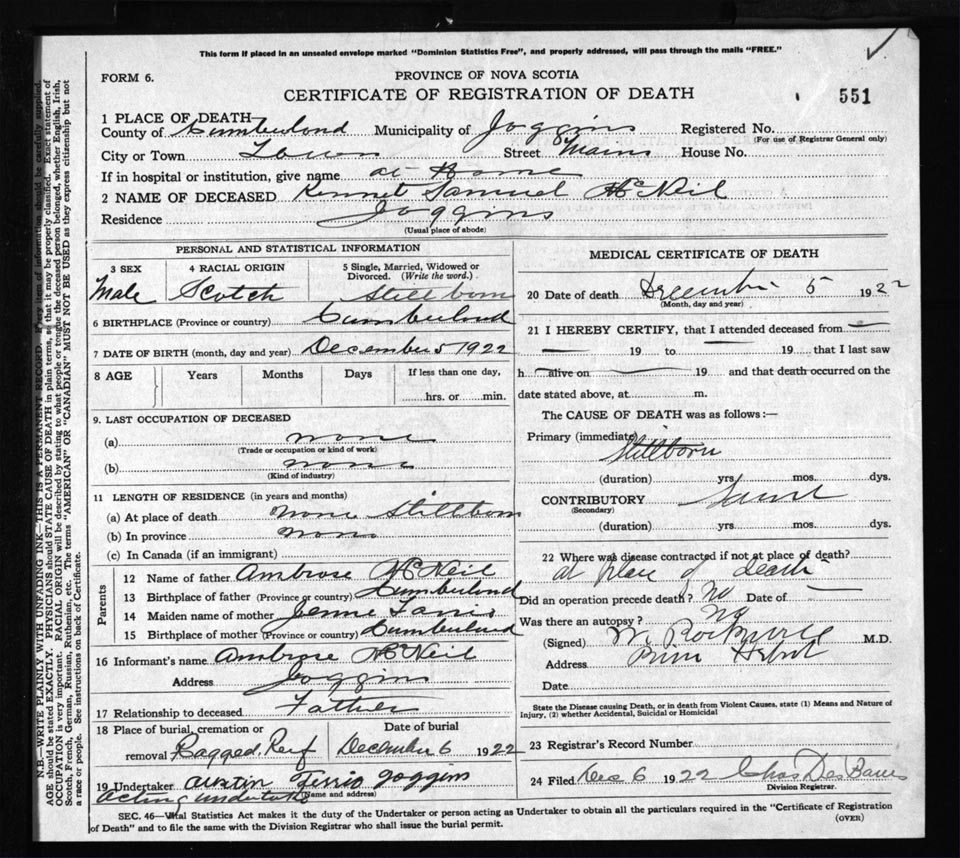 This form if placed in an unsealed envelope marked "Dominion Statistics Free", and properly addressed, will pass through the mails "FREE."
FORM 6.
PROVINCE OF NOVA SCOTIA
CERTIFICATE OF REGISTRATION OF DEATH
551
1 PLACE OF DEATH
County of Cumberland Municipality of Joggins Registered No.
(For use of Registrar General only)
City or Town Town Street Main House No.
If in hospital or institution, give name at Home
2 NAME OF DECEASED Kennet Samuel McNeil
Residence Joggins
(Usual place of abode)
PERSONAL AND STATISTICAL INFORMATION
3 SEX 4 RACIAL ORIGIN 5 Single, Married, Widowed or Divorced. (Write the word.)
Male Scotch Stillborn
6 BIRTHPLACE (Province or country) Cumberland
7 DATE OF BIRTH (month, day and year) December 5 1922
8 AGE Years Months Days If less than one day,
hrs. or min.
9. LAST OCCUPATION OF DECEASED
(a) none
(Trade or occupation or kind of work)
(b) none
(Kind of industry)
11 LENGTH OF RESIDENCE (in years and months)
(a) At place of death none Stillborn
(b) In province none
(c) In Canada (if an immigrant)
Parents
12 Name of father Ambrose McNeil
13 Birthplace of father (Province or country) Cumberland
14 Maiden name of mother 
15 Birthplace of mother (Province or country) Cumberland
16 Informant's name Ambrose McNeil
Address Joggins
17 Relationship to deceased Father
18 Place of burial, cremation or removal Ragged Reef
Date of burial December 6 1922
19 Undertaker Austin Joggins
(Name and address)
acting undertaker
MEDICAL CERTIFICATE OF DEATH
20 Date of death December 5 1922
(Month, day and year)
21 I HEREBY CERTIFY, that I attended deceased from
19 to 19 that I last saw
h alive on 19 and that death occurred on the
date stated above, at m.
The CAUSE OF DEATH was as follows:—
Primary (immediate) Stillborn
(duration) yrs. mos. dys.
CONTRIBUTORY
(Secondary)
(duration) yrs. mos. dys.
22 Where was disease contracted if not at place of death?
at place of death
Did an operation precede death? No Date of
Was there an autopsy? No
(Signed) M Rockwell M.D.
Address
Date
State the Disease causing Death, or in death from Violent Causes, state (1) Means and Nature of
Injury, (2) whether Accidental, Suicidal or Homicidal
23 Registrar's Record Number
24 Filed Dec 6 1922 Chas Des Barres
Division Registrar.
SEC. 46—Vital Statistics Act makes it the duty of the Undertaker or person acting as Undertaker to obtain all the particulars required in the "Certificate of Registration
of Death" and to file the same with the Division Registrar who shall issue the burial permit.
(OVER)
N.B.—WRITE PLAINLY WITH UNFADING INK—THIS IS A PERMANENT RECORD. Every item of information should be carefully supplied.
AGE should be stated EXACTLY. PHYSICIANS should STATE CAUSE OF DEATH in plain terms, so that it may be properly classified. Exact statement of
OCCUPATION is very important. RACIAL ORIGIN will be described by stating to what people or tongue the deceased person belonged, whether English, Irish,
Scotch, French, German, Russian, Ruthenian, etc. The terms "AMERICAN" OR "CANADIAN" MUST NOT BE USED as they express citizenship but not
a race or people. See instructions on back of Certificate.